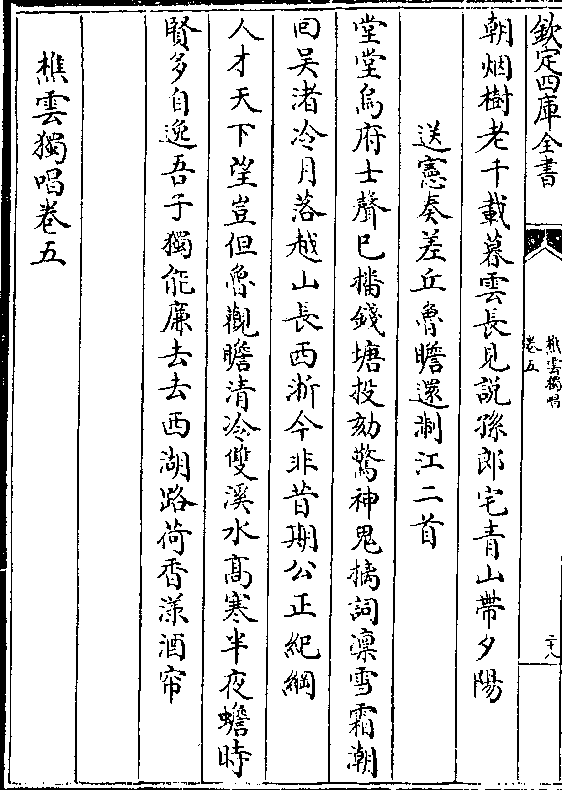 欽定四庫全書
樵雲獨唱
卷五
二十八
朝烟樹老千載暮雲長見說孫郎宅青山帶夕陽
送憲奏差丘魯瞻還制江二首
堂堂烏府士聲已播錢塘投劾驚神鬼摛詞凜雪霜潮
回吳渚冷月落越山長西浙今非昔期公正紀綱
人才天下望豈但魯觀瞻清冷雙溪水高寒半夜蟾時
賢多自逸吾子獨能廉去去西湖路荷香漾酒帘
樵雲獨唱卷五